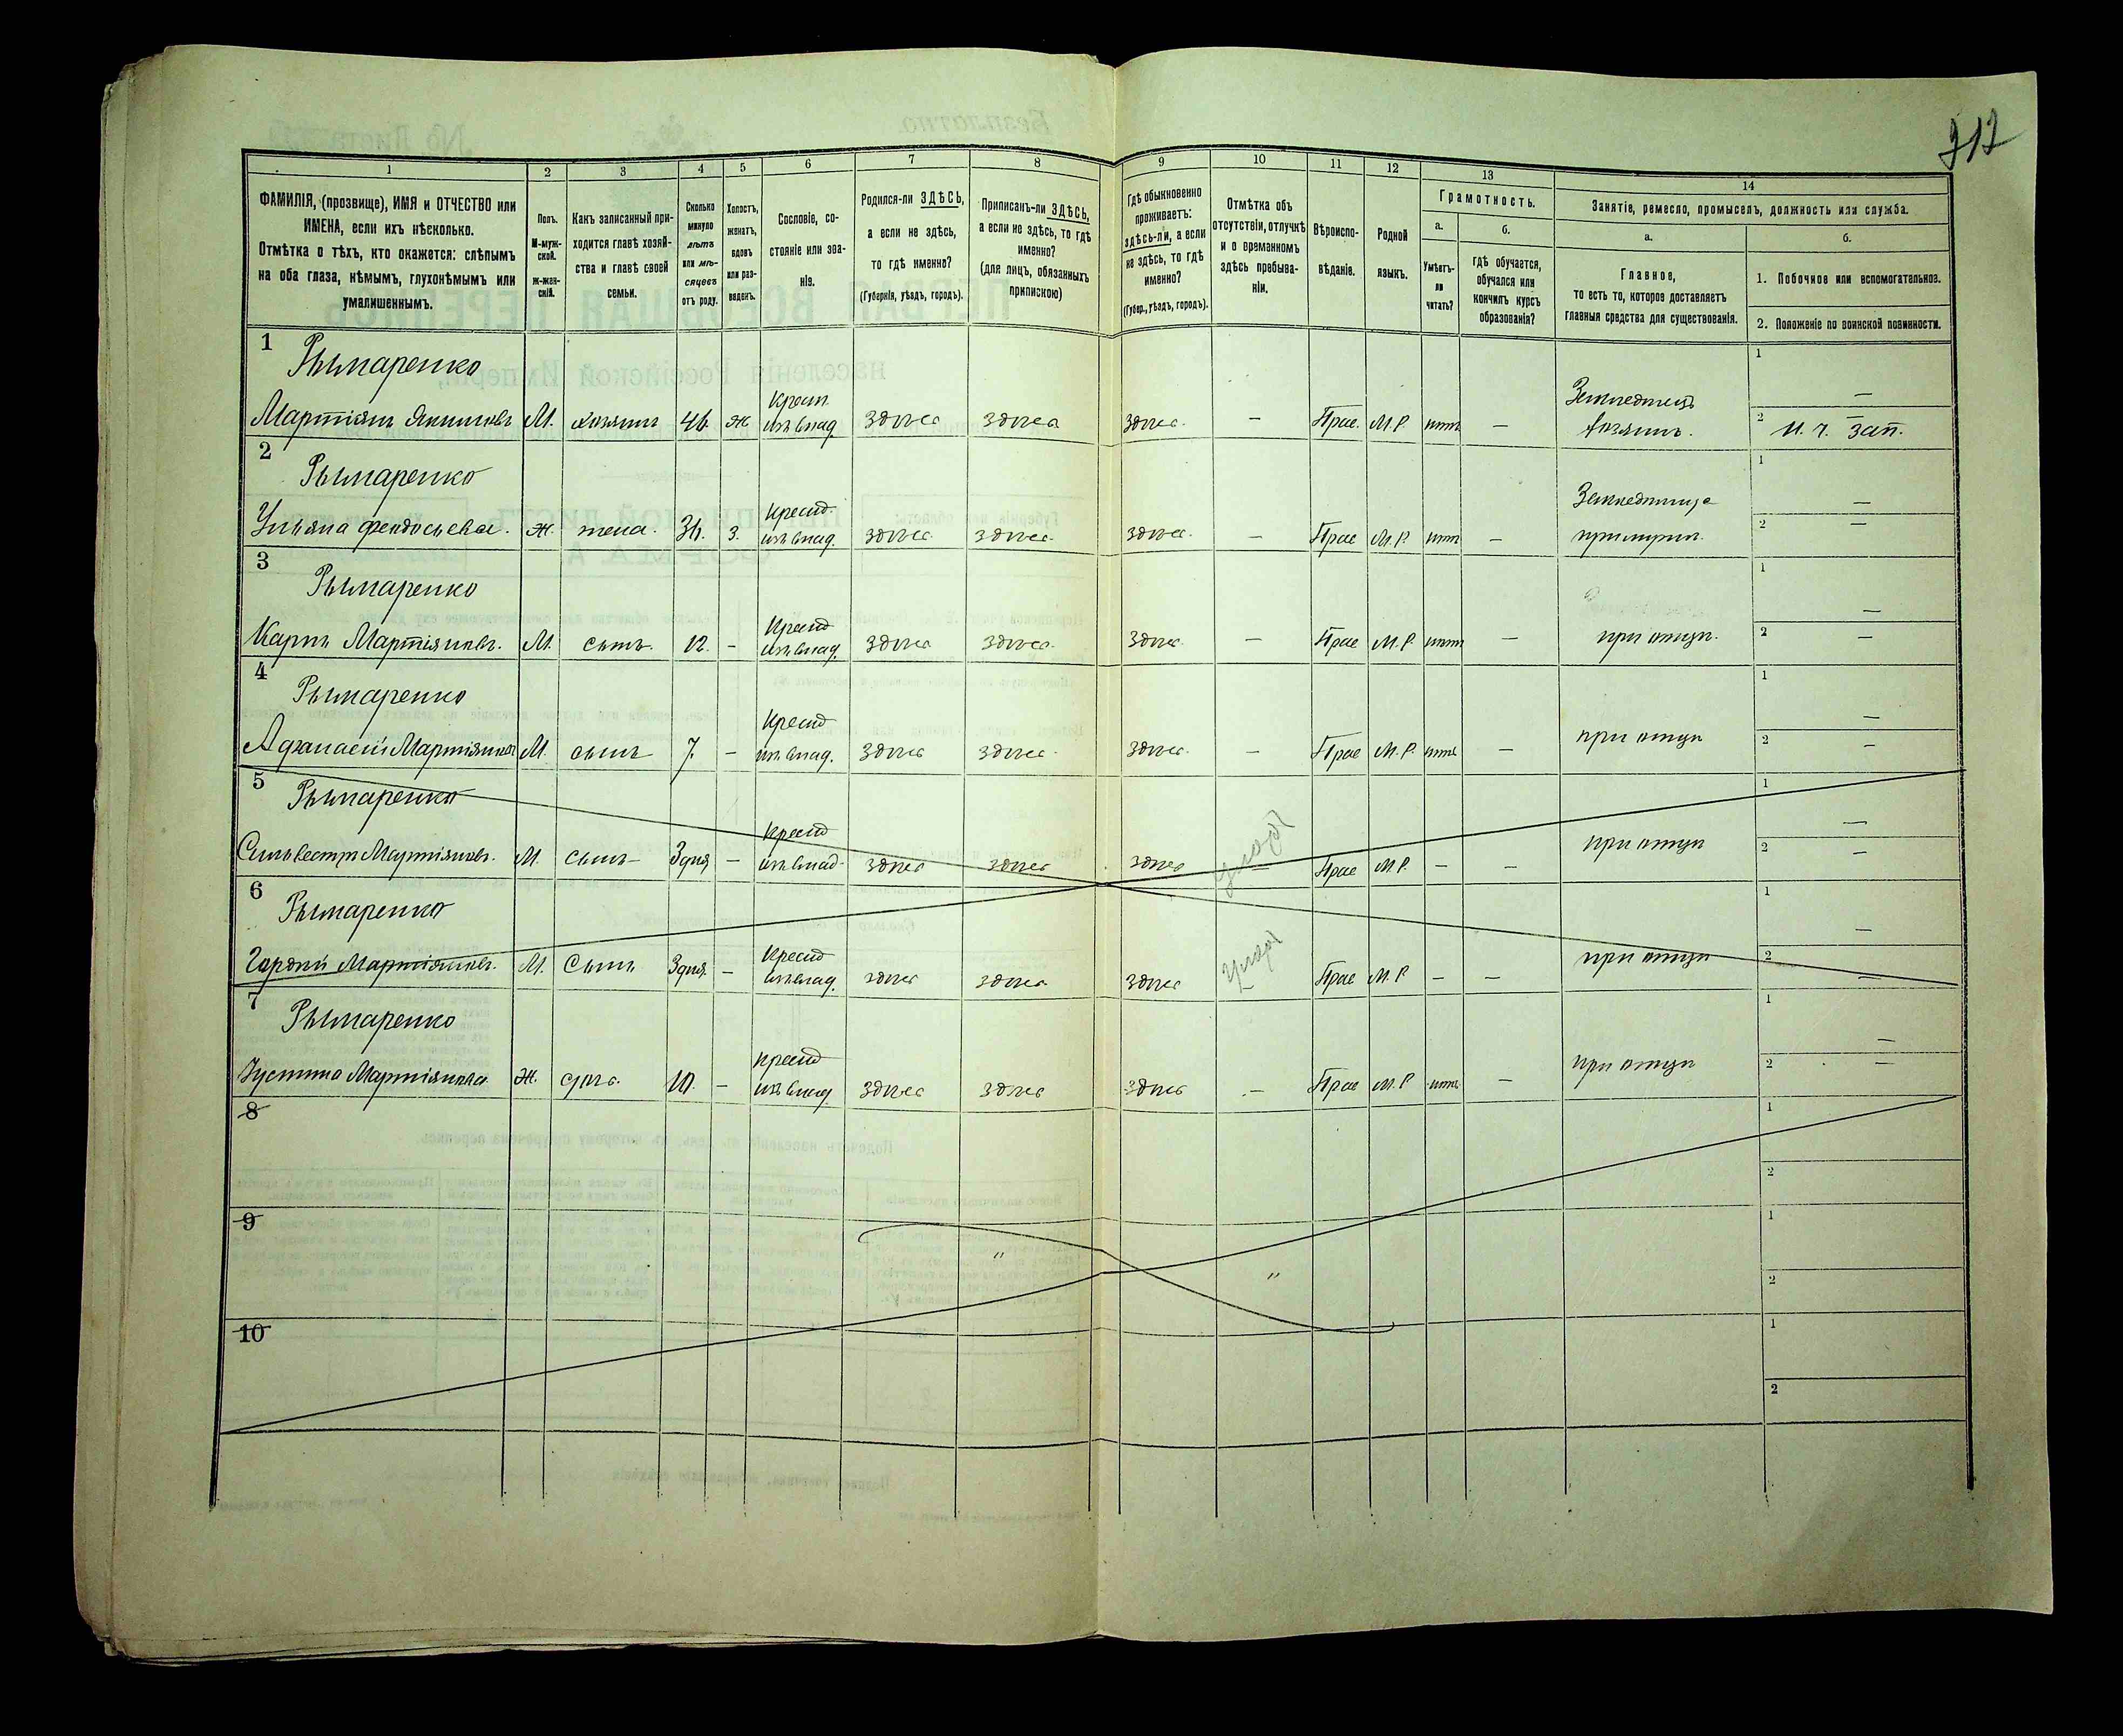 212
1 2 3 4 5 6 7 8 9 10 11 12 13 14
ФАМИЛІЯ, (прозвище), ИМЯ и ОТЧЕСТВО или
ИМЕНА, если ихъ нѣсколько.
Отмѣтка о тѣхъ, кто окажется: слѣпымъ
на оба глаза, нѣмымъ, глухонѣмымъ или
умалишеннымъ.
Полъ.
М-муж-
ской.
ж-жен-
скій.
Какъ записанный при-
ходится главѣ хозяй-
ства и главѣ своей
семьи.
Сколько
минуло
лѣтъ
или мѣ-
сяцевъ
отъ роду.
Холостъ,
женатъ,
вдовъ
или раз-
веденъ.
Сословіе, со-
стояніе или зва-
ніе.
Родился-ли ЗДѢСЬ,
а если не здѣсь,
то гдѣ именно?
(Губернія, уѣздъ, городъ).
Приписанъ-ли ЗДѢСЬ,
а если не здѣсь, то гдѣ
именно?
(для лицъ, обязанныхъ
припискою)
Гдѣ обыкновенно
проживаетъ:
здѣсь-ли, а если
не здѣсь, то гдѣ
именно?
(Губер., уѣздъ, городъ).
Отмѣтка объ
отсутствіи, отлучкѣ
и о временномъ
здѣсь пребыва-
ніи.
Вѣроиспо-
вѣданіе.
Родной
языкъ.
Грамотность.
а.
Умѣетъ-
ли
читать?
б.
гдѣ обучается,
обучался или
кончилъ курсъ
образованія?
Занятіе, ремесло, промыселъ, должность или служба.
а.
Главное,
то есть то, которое доставляетъ
главныя средства для существованія.
б.
1. Побочное или вспомогательное.
2. Положеніе по воинской повинности.
1 Рымаренко Крест. Земледѣлецъ 1 —
Мартіянъ Якимовъ М. хозяинъ 46. ж изъ влад. здѣсь здѣсь здѣсь. — Прав. М.Р. нѣтъ — хозяинъ. 2 — н. ч. зап.
2 Рымаренко Крестъ. Земледѣлица 1 —
Ульяна Феодосьева. ж. жена. 36. з. изъ влад. здѣсь здѣсь. здѣсь. — Прав М.Р. нѣтъ — при мужѣ. 2 —
3 Рымаренко Крестъ 1 —
Карпъ Мартіяновъ. М. сынъ. 12. — изъ влад. здѣсь здѣсь. здѣсь. — Прав М.Р. нѣтъ — при отцѣ. 2 —
4 Рымаренко Крестъ при отцѣ 1 —
Афанасій Мартіяновъ М. сынъ 7. — изъ влад. здѣсь здѣсь. здѣсь. — Прав М.Р. нѣтъ — 2 —
5 Рымаренко Крестъ при отцѣ 1 —
Сильвестръ Мартіяновъ. М. сынъ 3 дня — изъ влад. здѣсь здѣсь здѣсь — Прав М.Р. — — 2 —
6 Рымаренко Крестъ при отцѣ 1 —
Гордѣй Мартіяновъ. М. Сынъ 3 дня. — изъ влад. здѣсь здѣсь здѣсь — Прав М.Р. — — 2 —
7 Рымаренко Крестъ при отцѣ 1 —
Іустина Мартіянова ж. дочь. 10. — изъ влад. здѣсь здѣсь здѣсь — Прав М.Р. нѣтъ — 2 —
8 1
2
9 1
" " 2
10 1
2